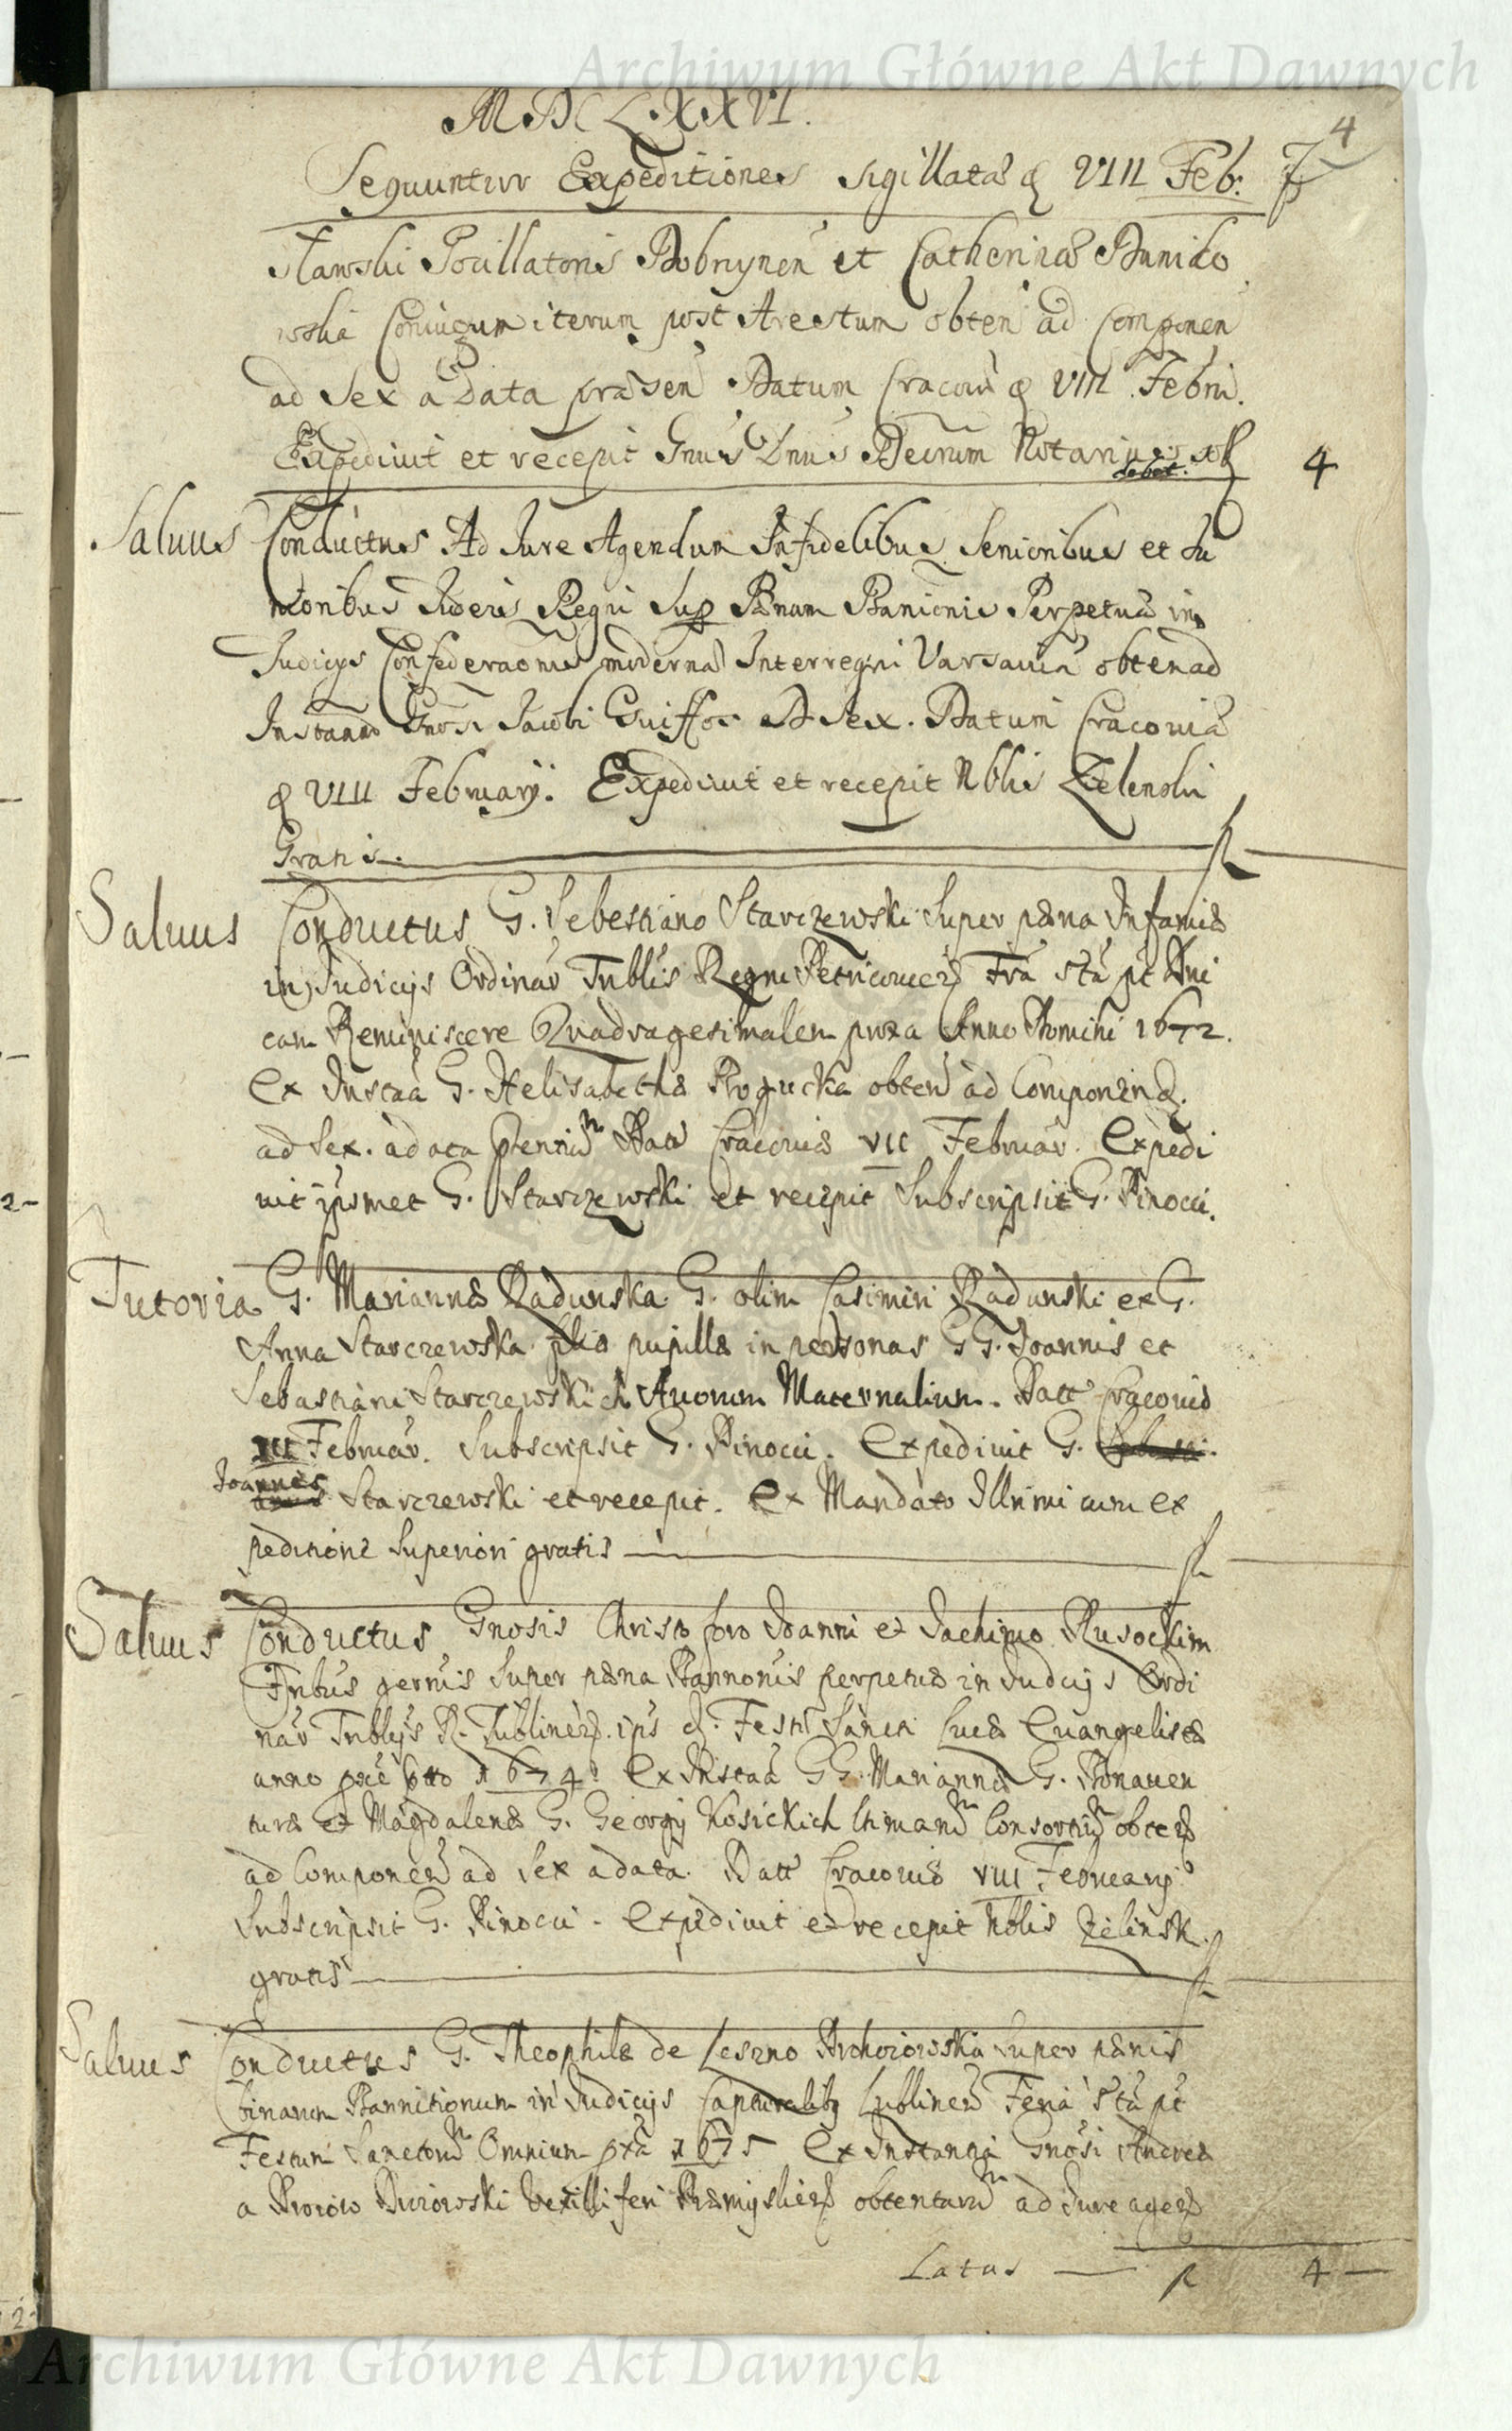 Archiwum Główne Akt Dawnych
M.DC.L.X.X.VI.
4
Sequuntur Expeditiones sigillatae d VIII Feb: 7
sławski Pocillatoris Dobrzynen et Catherinae Duniko
wska Coniugum iterum post Arestum obten ad Componen
ad Sex a Data praesen Datum Cracoviae d VIII Febru.
Expedivit et recepit Gnus Dnus Decrum Notarius
debet. 4
Salvus Conductus Ad Iure Agendum Infidelibus Senioribus et Iu
nioribus Iudeis Regni Sup Paenam Banionis Perpetuae in
Iudicijs Confederaonis modernae Interregni Varsaviae obten ad
Instann Gnosi Iacobi Ad Sex. Datum Cracoviae
d VIII Februarij. Expedivit et recepit Nblis Zelenski
Gratis.
Salvus Conductus G. Sebestiano Starczewski Super paena Infamiae
in Iudicijs Ordinar Tnblus Regni Petricovien Fra sta pt Dni
cam Reminiscere Quadragesimalem proxa Anno Domini 1672.
Ex Instaa G. Helisabethae Rogucka obten ad Componend.
ad Sex. a data Datt Cracoviae VII Februar. Expedi
vit ipsmet G. Starczewski et recepit Subscripsit G. Pinocci.
Tutoria G. Mariannae Radunska G. olim Casimiri Radunski ex G.
Anna Starczewska filia pupilla in personas GG. Joannis et
Sebastiani Starczewskich Avorum Maternalium. Datt Cracoviae
VII Februar. Subscripsit G. Pinocci. Expedivit G.
Joannes Starczewski et recepit. Ex Mandato Illrimi cum ex
peditione Superiori gratis
Salvus Conductus Gnosis Christoforo Joanni et Jachimo Rusockim
Fribus gernis Super paena Bannonis perpetuae in Iudicijs Ordi
nar Tnblijs R. Lublinen. ips d. Festi Sancti Lucae Evangelistae
anno 1674 Ex Instaa GG. Mariannae G. Bonaven
turae et Magdalenae G. Georgij Kosickich Consortiu obten
ad Componen ad Sex a data. Datt Cracoviae VIII Februarij
Subscripsit G. Pinocci. Expedivit et recepit Nblis Zelinsk.
gratis
Salvus Conductus G. Theophilae de Leszno Super paenis
binarum Bannitionum in Iudicijs Capturalibs Lublinen Feria sta pt
Festum Sanctoru Omnium pxa 1675 Ex Instantia Gnosi Andrea
a Vexilliferi Praemyslien obtentaru ad Iure agen
Latus — 4 —
Archiwum Główne Akt Dawnych